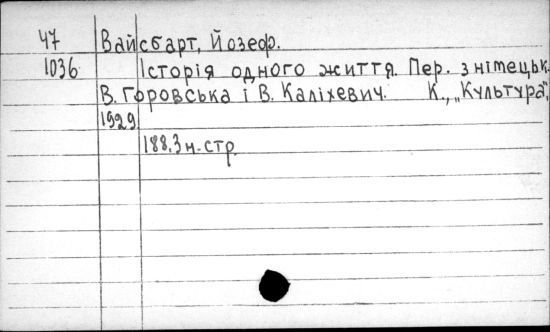 47 Вайсбарт, Йозеф.
1036 Історія одного життя. Пер. з німецьк.
В. Горовська і В. Каліхевич. К., „Культура",
1929
188.3 н. стр.